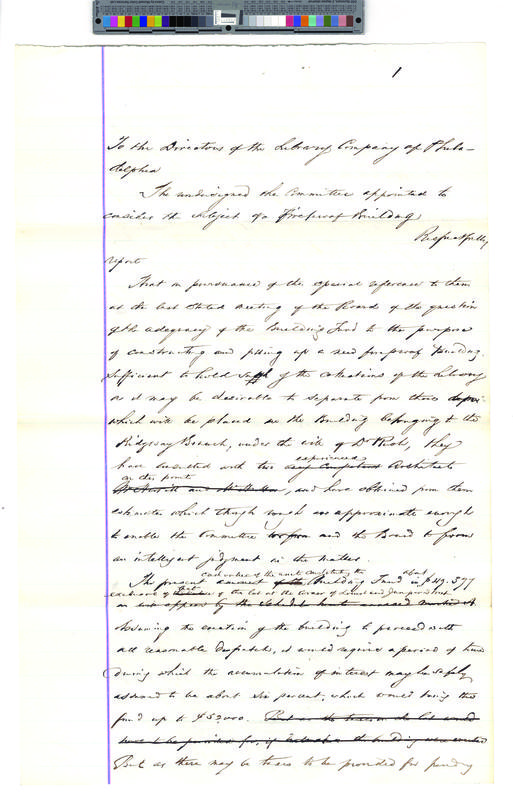 1
To the Directors of the Library Company of Phila-
delphia
The undersigned the Committee appointed to
consider the subject of a Fireproof Building
Respectfully
report
That in pursuance of the special reference to them
at the last stated meeting of the Board of the question
of the adequacy of the Building Fund to the purpose
of constructing and fitting up a new fireproof Building
sufficient to hold such of the collections of the Library
as it may be desirable to separate from those
which will be placed in the Building belonging to the
Ridgway Branch, under the will of Dr Rush, they
experienced
have consulted with two very competent Architects
on this point
and, and have obtained from them
estimates which though rough are approximate enough
to enable the Committee and the Board to form
an intelligent judgment in the matter.
cash value of the assets constituting the about
The present amount of the Building Fund is $49.377
exclusive of of the lot at the corner of Locust and Juniper Streets
as appears by the Schedule hereto annexed marked A
Assuming the erection of the building to proceed with
all reasonable despatch, it would require a period of time
during which the accumulation of interest may be safely
assumed to be about six percent, which would bring the
fund up to $52000. But as the taxes on the lot would
have to be provided for, if the building were erected
But as there may be taxes to be provided for pending